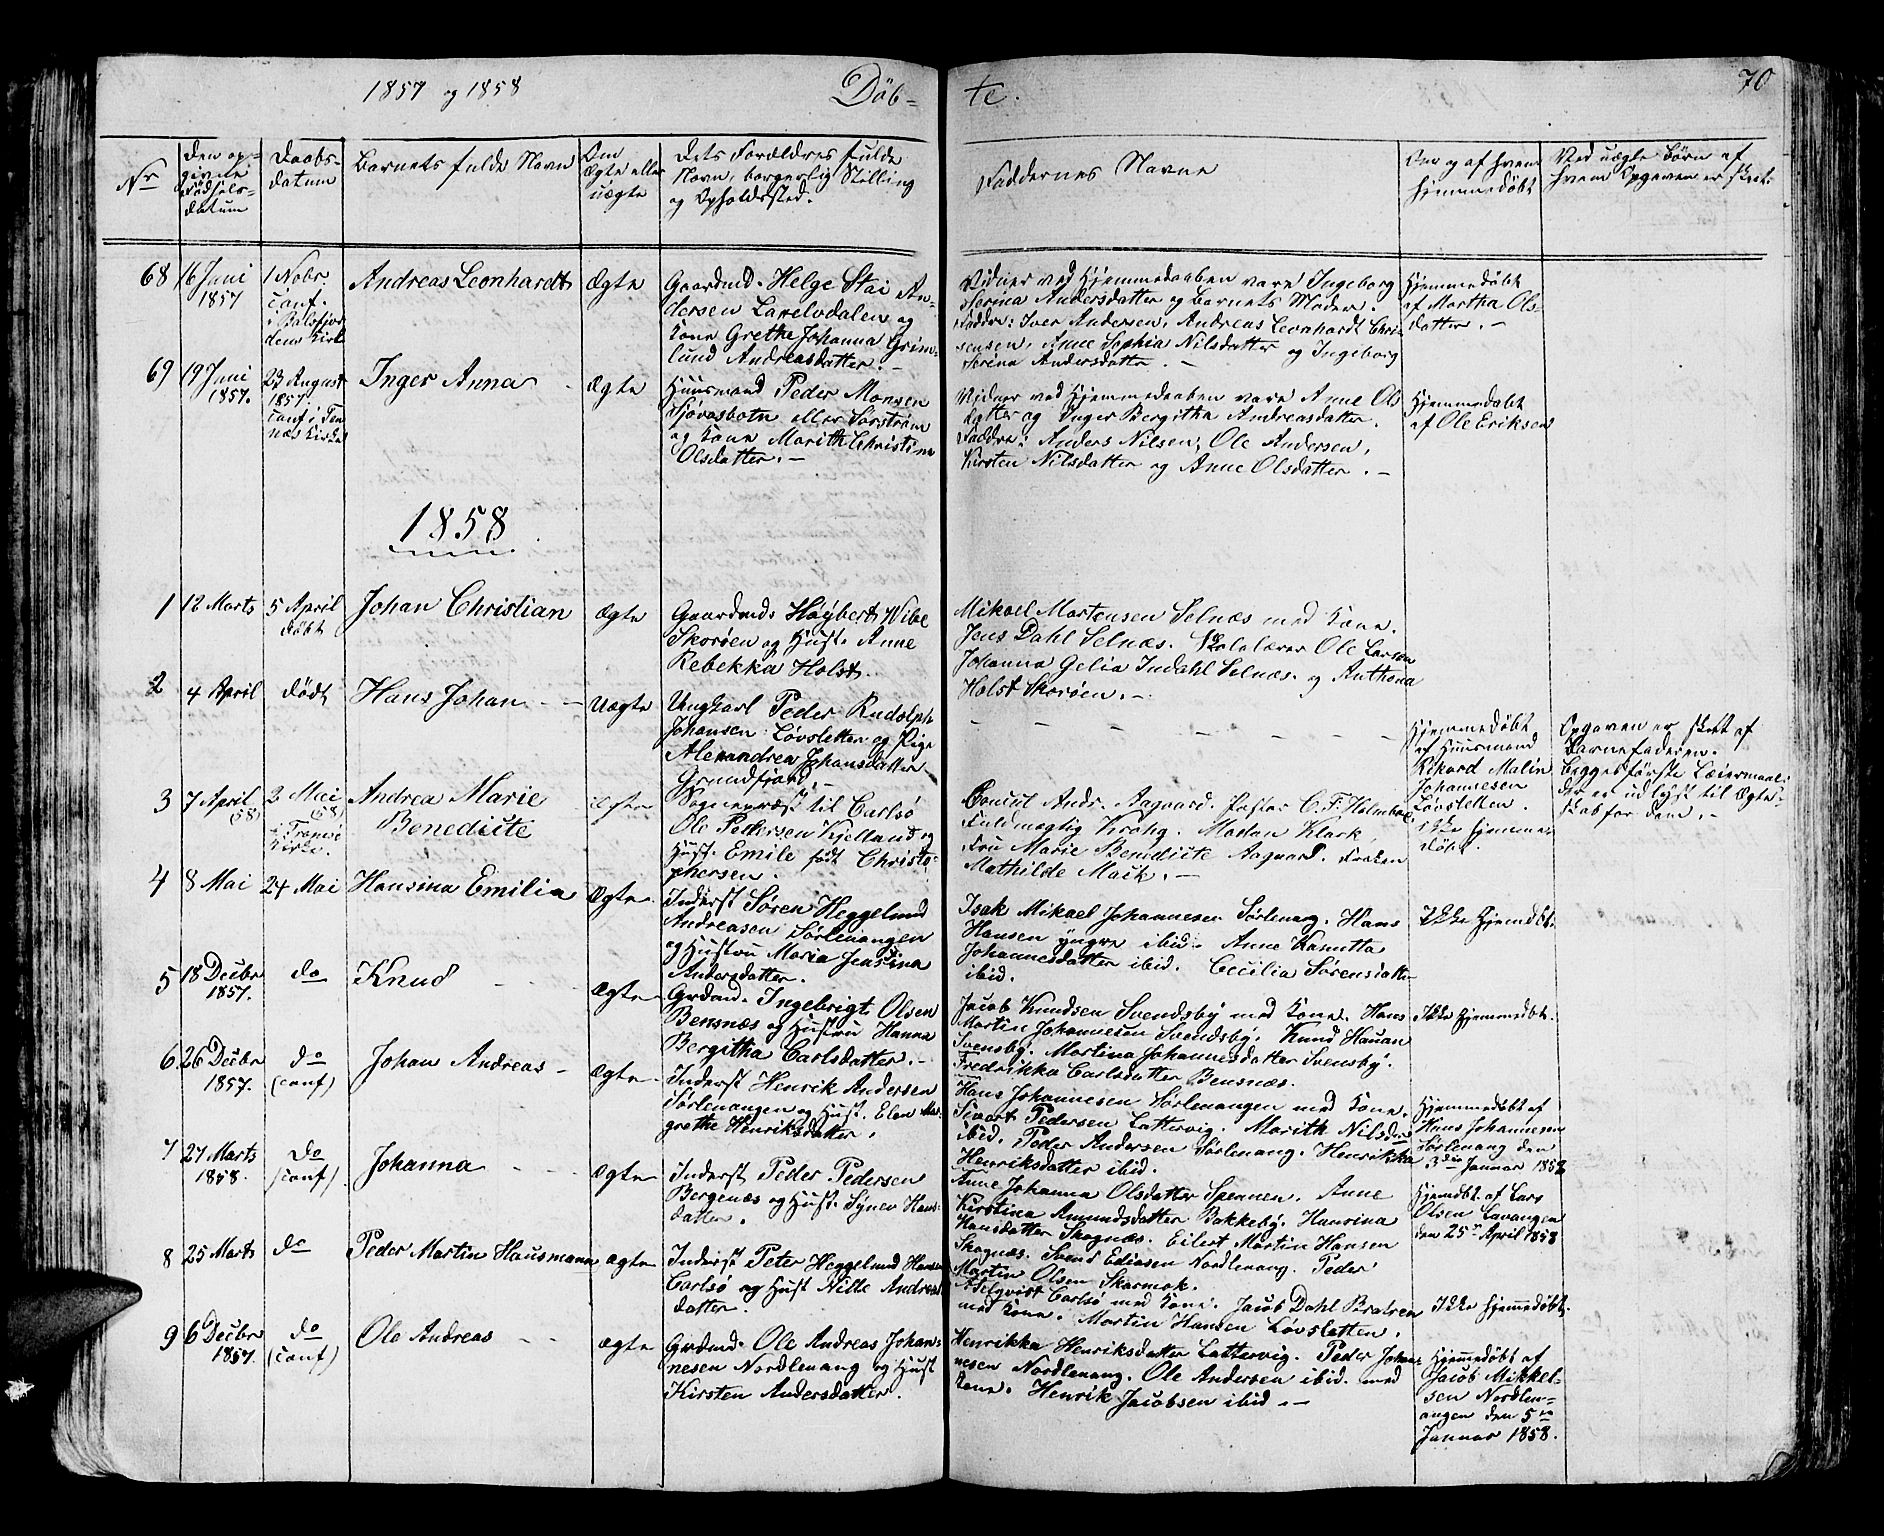 1857 og 1858
Døb-
te.
70
Nr
Den op-
givne
Fødsels-
datum
Daabs-
datum
Barnets fulde Navn
Om
Ægte eller
uægte
Dets Forældres fulde
Navn, borgerlig Stilling
og Opholdssted.
Faddernes Navne
Om og af hvem
hjemmedøbt
Ved uægte Børn af
hvem Opgaven er skeet.
68
16 Juni
1857
1 Nobr.
Conf.
i Balsfjor
dens Kirke
Andreas Leonhardt
Ægte
Gaardmd. Helge Stai An-
dersen Lavelvdalen og
Kone Grethe Johanna Grim-
lund Andreasdatter. –
Vidner ved Hjemmedaaben vare Ingeborg
Serina Andersdatter og Barnets Moder.
Faddre: Iver Andersen, Andreas Leonhardt Chri-
stensen, Anne Sophia Nilsdatter og Ingeborg
Serina Andersdatter. –
Hjemmedøbt
af Martha Ols-
datter. –
69
19 Juni
1857.
23 August
1857.
Conf. i Ten
næs Kirke
Inger Anna
Ægte
Huusmand Peder Monsen
Sjovasbotn eller Sørstrøm
og Kone Marith Christine
Olsdatter. –
Vidner ved Hjemmedaaben vare Anne Ols
datter og Inger Bergitha Andreasdatter.
Faddre: Anders Nilsen, Ole Andersen,
Kirsten Nilsdatter og Anne Olsdatter. –
Hjemmedøbt
af Ole Eriksen
1858
1
12 Marts
5 April
døbt
Johan Christian
Ægte
Gaardmd. Høybert Wibe
Skorøen og Hust. Anne
Rebekka Holst.
Mikael Mortensen Selnæs med Kone.
Jens Dahl Selnæs. Skolelærer Ole Larsen
Johanna Gelia Indahl Selnæs. og Anthona
Holst Skorøen. –
2
4 April
død
Hans Johan
Uægte
Ungkarl Peder Rudolph
Johansen Løvsletten og Pige
Alexandrea Johansdatter
Grundfjord.
Hjemmedøbt
af Huusmand
Rikard Malin
Johannesen
Løvsletten.
Opgaven er skeet af
Barnefaderen.
Begges første Leiermaal.
Der er udlyst til Ægte-
skab for dem. –
3
7 April
(58)
2 Mai
(58)
i Tromsø
Kirke.
Andrea Marie
Benedicte
Ægte
Sognepræst til Carlsø
Ole Pedersen Kjelland og
Hust. Emile født Christo-
phersen.
Consul Andr. Aagaard. Pastor C. F. Holmboe
Fuldmægtig Krohg. Madam Klark.
Fru Marie Benedicte Aagaard. Frøken
Mathilde Mack. –
Ikke hjemme-
døbt
4
8 Mai
24 Mai
Hansina Emilia
Ægte
Inderst Søren Heggelund
Andreasen Sørlenangen
og Hustru Maria Jensina
Andersdatter.
Isak Mikael Johannesen Sørlenang. Hans
Hansen yngre ibid. Anne Kanutta
Johannesdatter ibid. Cecilia Sørensdatter
ibid.
Ikke Hjemdbt.
5
18 Decbr
1857.
do
Knud
Ægte
Grdmd. Ingebrigt Olsen
Bensnæs og Hustru Hanna
Bergitha Carlsdatter. –
Jacob Knudsen Svendsby med Kone. Hans
Martin Johannesen Svendsby. Knud Hansen
Svensby. Martina Johannesdatter Svensby.
Fredrikka Carlsdatter Bensnæs.
Ikke hjemmedbt.
6
26 Decbr
1857.
do
(conf)
Johan Andreas
Ægte
Inderst Henrik Andersen
Sørlenangen og Hust. Elen Mar-
grethe Henriksdatter.
Hans Johannesen Sørlenangen med Kone.
Sivert Pedersen Lattervig. Marith Nilsdtr
ibid. Peder Andersen Sørlenang. Henrikka
Henriksdatter ibid.
Hjemmedøbt af
Hans Johannesen
Sørlenang den
3die Januar 1858
7
27 Marts
1858.
do
(conf)
Johanna
Ægte
Inderst Peder Pedersen
Bergenæs og Hust. Synev Hans-
datter.
Anne Johanna Olsdatter Spennen. Anne
Kirstina Amundsdatter Bakkeby. Hansina
Hansdatter Skognæs. Eilert Martin Hansen
Skognæs. Svend Ediasen Nordlenang. Peder
Martin Olsen Skarmok.
Hjemdbt. af Lars
Olsen Lavangen
den 25de April 1858
8
25 Marts
do
Peder Martin Hausmann
Ægte
Inderst Peter Heggelund Hansen
Carlsø og Hust Nille Andreas
datter.
Carlsø med Kone. Jacob Dahl Bratrein
med Kone. Martin Hansen Løvsletten.
Ikke hjemmedøbt.
9
6 Decbr
1857.
do
(conf)
Ole Andreas
Ægte
Grdmd. Ole Andreas Johan-
nesen Nordlenang og Hust
Kirsten Andersdatter.
Henrikka Henriksdatter Lattervig. Peder Johan-
nesen Nordlenang. Ole Andersen ibid. med
Kone. Henrik Jacobsen ibid –
Hjemmedøbt af
Jacob Mikkel-
sen Nordlen-
angen den 5te
Januar 1858.